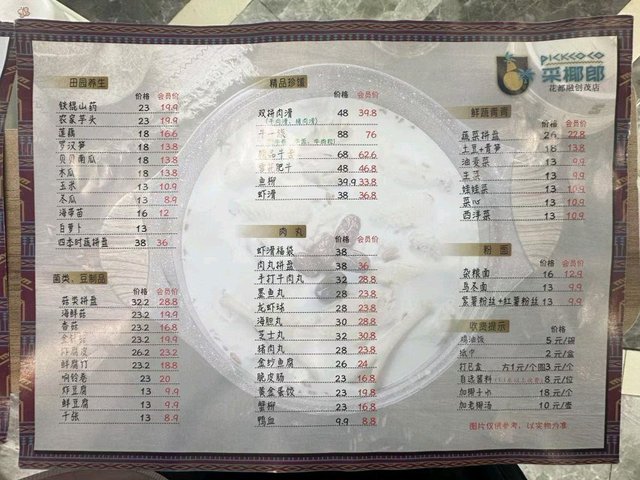 PICKCOCO
采椰郎
花都融创茂店
田园养生 价格 会员价
铁棍山药 23 19.9
农家芋头 23 19.9
莲藕 18 16.6
罗汉笋 18 13.8
贝贝南瓜 18 13.8
木瓜 18 13.8
玉米 13 10.9
冬瓜 13 8.9
海带苗 16 12
白萝卜 13
四季时蔬拼盘 38 36
菌类、豆制品 价格 会员价
菇类拼盘 32.2 28.8
海鲜菇 23.2 19.9
香菇 23.2 16.8
23.2 19.9
炸腐皮 26.2 23.2
鲜腐竹 23.2 18.8
响铃卷 23 20
炸豆腐 13 9.9
鲜豆腐 13 9.9
千张 13 8.9
精品珍馐 价格 会员价
双拼肉滑 48 39.8
(牛肉滑、猪肉滑)
88 76
68 62.6
肥牛 48 46.8
鱼柳 39.9 33.8
虾滑 38 36.8
肉丸 价格 会员价
虾滑福袋 38
肉丸拼盘 38 36
手打牛肉丸 32 28.8
墨鱼丸 28 23.8
龙虾球 28 23.8
海胆丸 30 28.8
芝士丸 32 30.8
猪肉丸 28 23.8
金钞鱼腐 26 24
脆皮肠 23 16.8
黄金蛋饺 23 19.8
蟹柳 23 16.8
鸭血 9.9 8.8
鲜蔬菁菁 价格 会员价
蔬菜拼盘 26 22.8
土豆+青笋 18 13.8
油麦菜 13 9.9
生菜 13 9.9
娃娃菜 13 10.9
菜心 13 10.9
西洋菜 13 10.9
粉面 价格 会员价
杂粮面 16 12.9
乌冬面 13 9.9
紫薯粉丝+红薯粉丝 13 9.9
收费提示 价格
鸡油饭 5 元/碗
纸巾 2 元/盒
打包盒 方1元/个圆3元/个
自选酱料 8 元/位
加椰子水 18 元/个
加老椰汤 10 元/壶
图片仅供参考，以实物为准